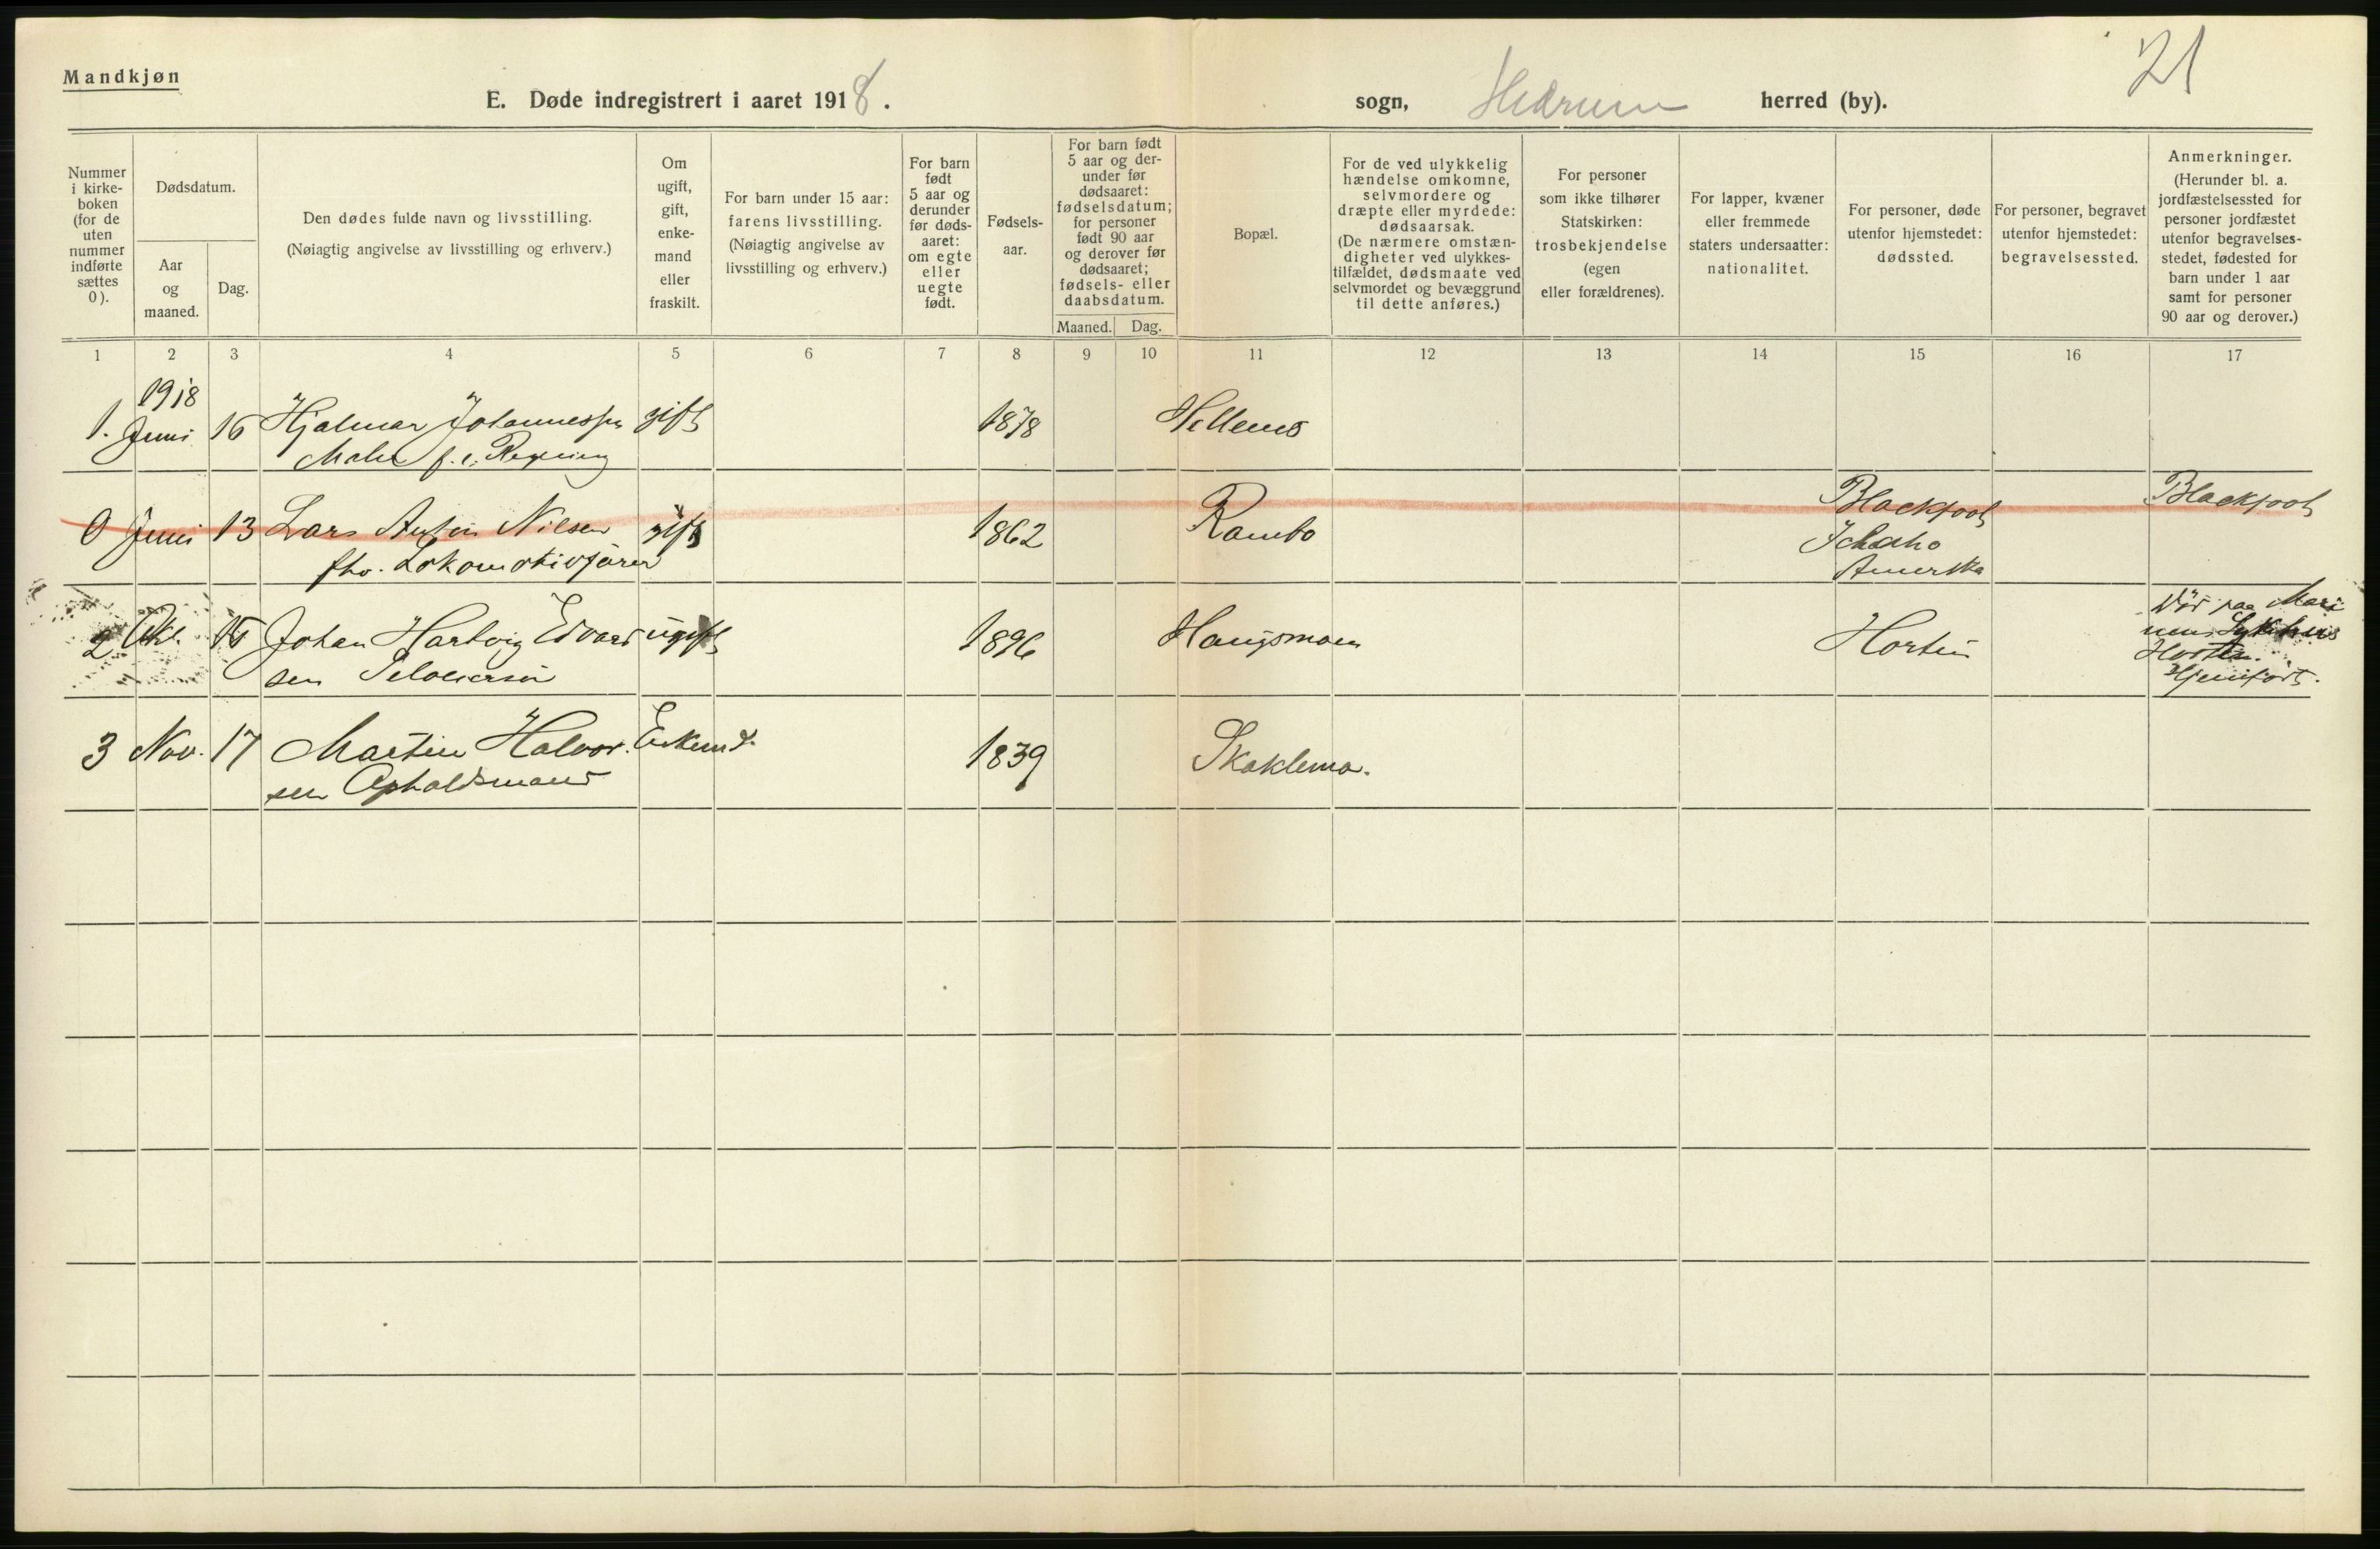 Mandkjøn
21
E. Døde indregistrert i aaret 1918.
sogn, Hedrum herred (by).
Nummer i kirke-boken (for de uten nummer indførte sættes 0).
Dødsdatum.
Aar og maaned.
Dag.
Den dødes fulde navn og livsstilling.
(Nøiagtig angivelse av livsstilling og erhverv.)
Om ugift, gift, enke-mand eller fraskilt.
For barn under 15 aar: farens livsstilling.
(Nøiagtig angivelse av livsstilling og erhverv.)
For barn født 5 aar og derunder før døds-aaret: om egte eller uegte født.
Fødsels-aar.
For barn født 5 aar og der-under før dødsaaret: fødselsdatum; for personer født 90 aar og derover før dødsaaret; fødsels- eller daabsdatum.
Maaned.
Dag.
Bopæl.
For de ved ulykkelig hændelse omkomne, selvmordere og dræpte eller myrdede: dødsaarsak.
(De nærmere omstæn-digheter ved ulykkes-tilfældet, dødsmaate ved selvmordet og bevæggrund til dette anføres.)
For personer som ikke tilhører Statskirken: trosbekjendelse (egen eller forældrenes).
For lapper, kvæner eller fremmede staters undersaatter: nationalitet.
For personer, døde utenfor hjemstedet: dødssted.
For personer, begravet utenfor hjemstedet: begravelsessted.
Anmerkninger.
(Herunder bl. a. jordfæstelsessted for personer jordfæstet utenfor begravelses-stedet, fødested for barn under 1 aar samt for personer 90 aar og derover.)
1 2 3 4 5 6 7 8 9 10 11 12 13 14 15 16 17
1918
1. Juni 16 Hjalmar Johannessen gift 1878 Hellems
Maler f. e. Regning
0 Juni 13 Lars Anton Nilsen gift 1862 Rambo Blackfoot Blackfoot
fhv. Lokomotivfører Idaho
Amerika
2 Okt. 15 Johan Hartvig Edvard ugift 1896 Haugsmoen Horten Død paa Mari
sen nens Sykehus
Horten.
Hjemført.
3 Nov. 17 Martin Halvor. Enkemd. 1839 Skaklemo.
sen Opholdsmand